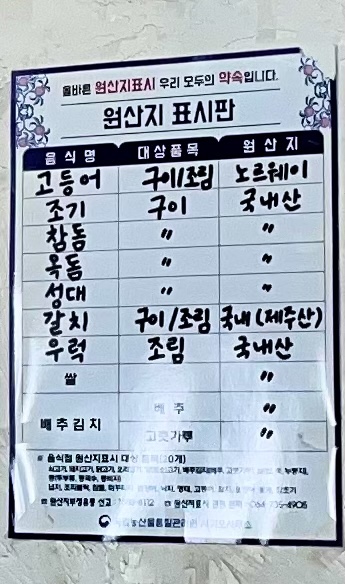 올바른 원산지표시 우리 모두의 약속입니다.
원산지 표시판
음식명 대상품목 원산지
고등어 구이/조림 노르웨이
조기 구이 국내산
참돔 〃 〃
옥돔 〃 〃
성대 〃 〃
갈치 구이/조림 국내(제주산)
우럭 조림 국내산
쌀 〃
배추김치 배추 〃
고춧가루 〃
음식점 원산지표시 대상
쇠고기, 돼지고기, 닭고기,
원산지부정유통 신고